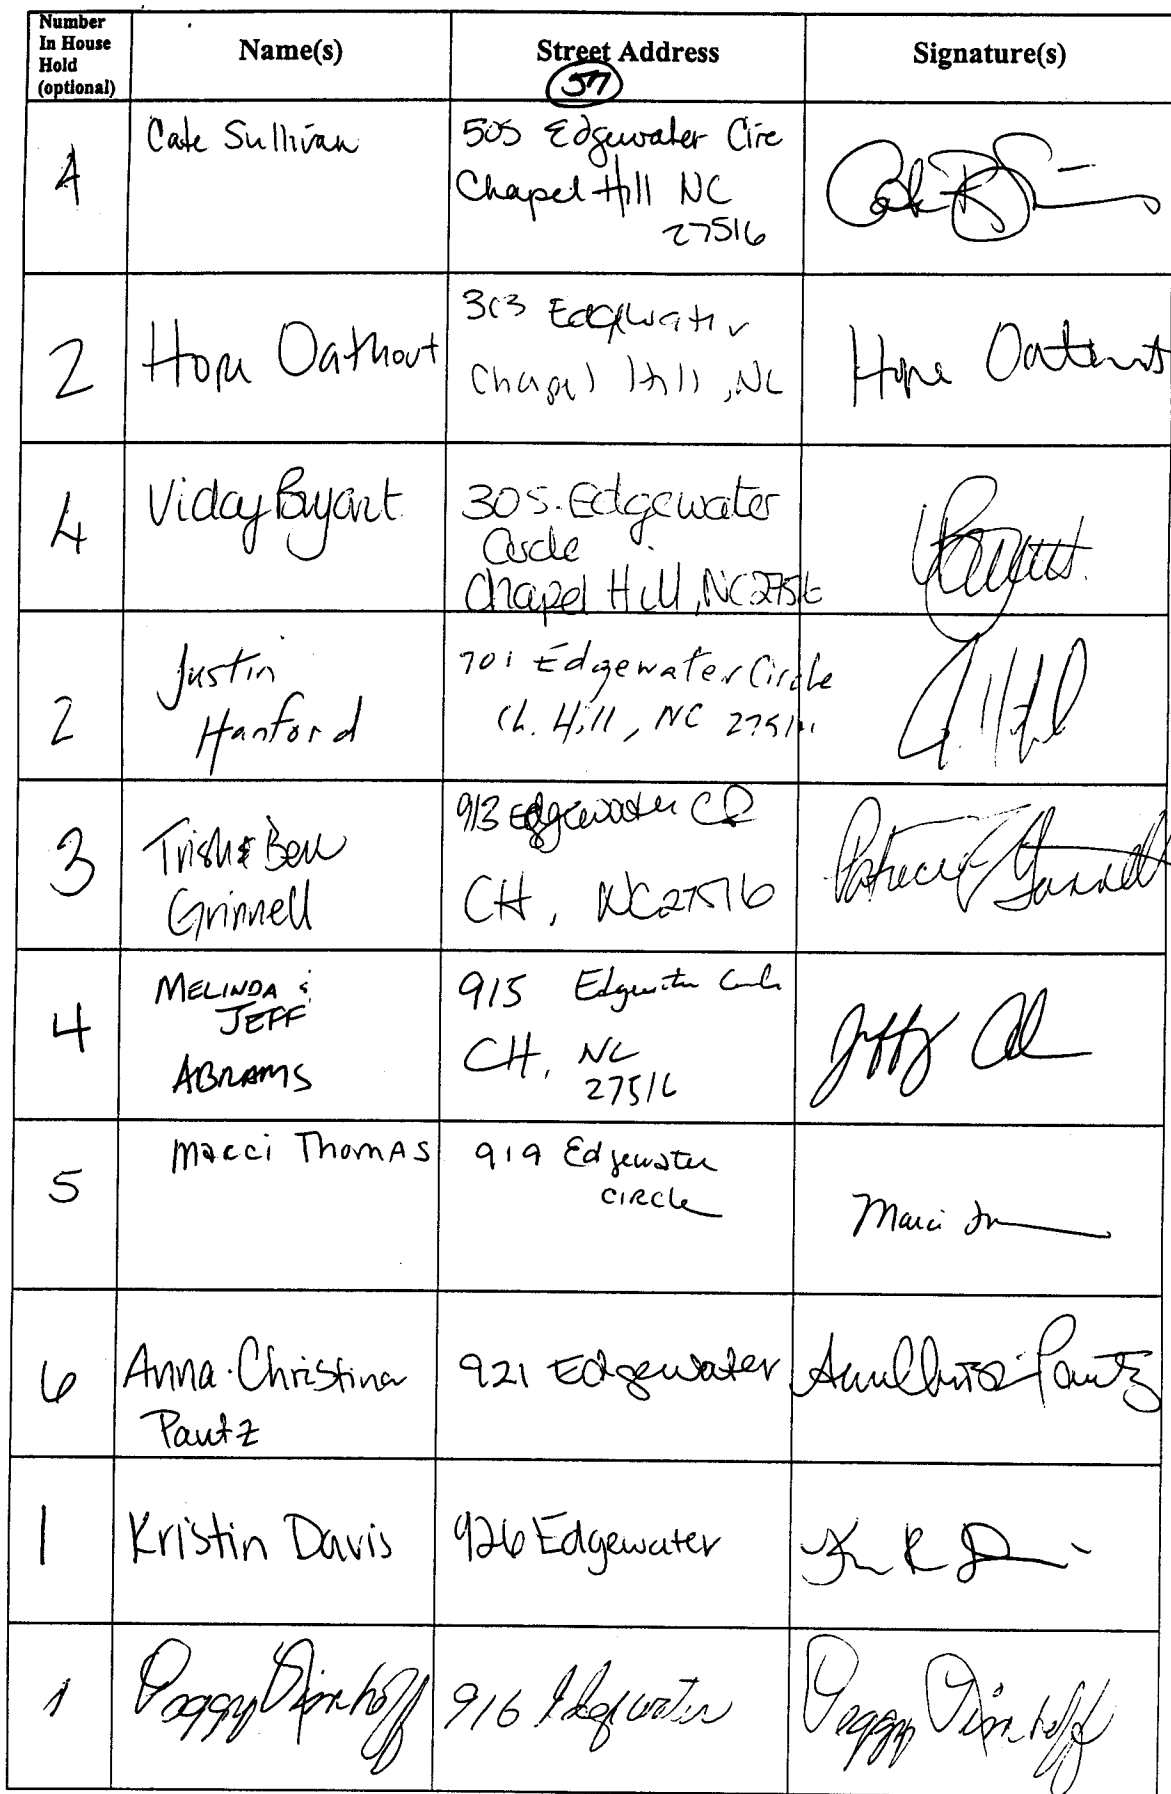 Number
In House
Hold
(optional)
Name(s)
Street Address
57
Signature(s)
4
Cate Sullivan
505 Edgewater Circ
Chapel Hill NC
27516
2
Hope Oathout
313 Edgewater
Chapel Hill, NC
Hope Oathout
4
305 Edgewater
Circle
Chapel Hill, NC 27516
2
Justin
Hanford
701 Edgewater Circle
Ch. Hill, NC
3
Trish & Ben
Grinnell
913 Edgewater CR
CH, NC 27516
Patricia Grinnell
4
MELINDA &
JEFF
ABRAMS
915 Edgewater Circle
CH, NC
27516
5
Marci Thomas
919 Edgewater
CIRCLE
Marci
6
Anna-Christina
Pautz
921 Edgewater
Pautz
1
Kristin Davis
926 Edgewater
1
Peggy
916 Edgewater
Peggy